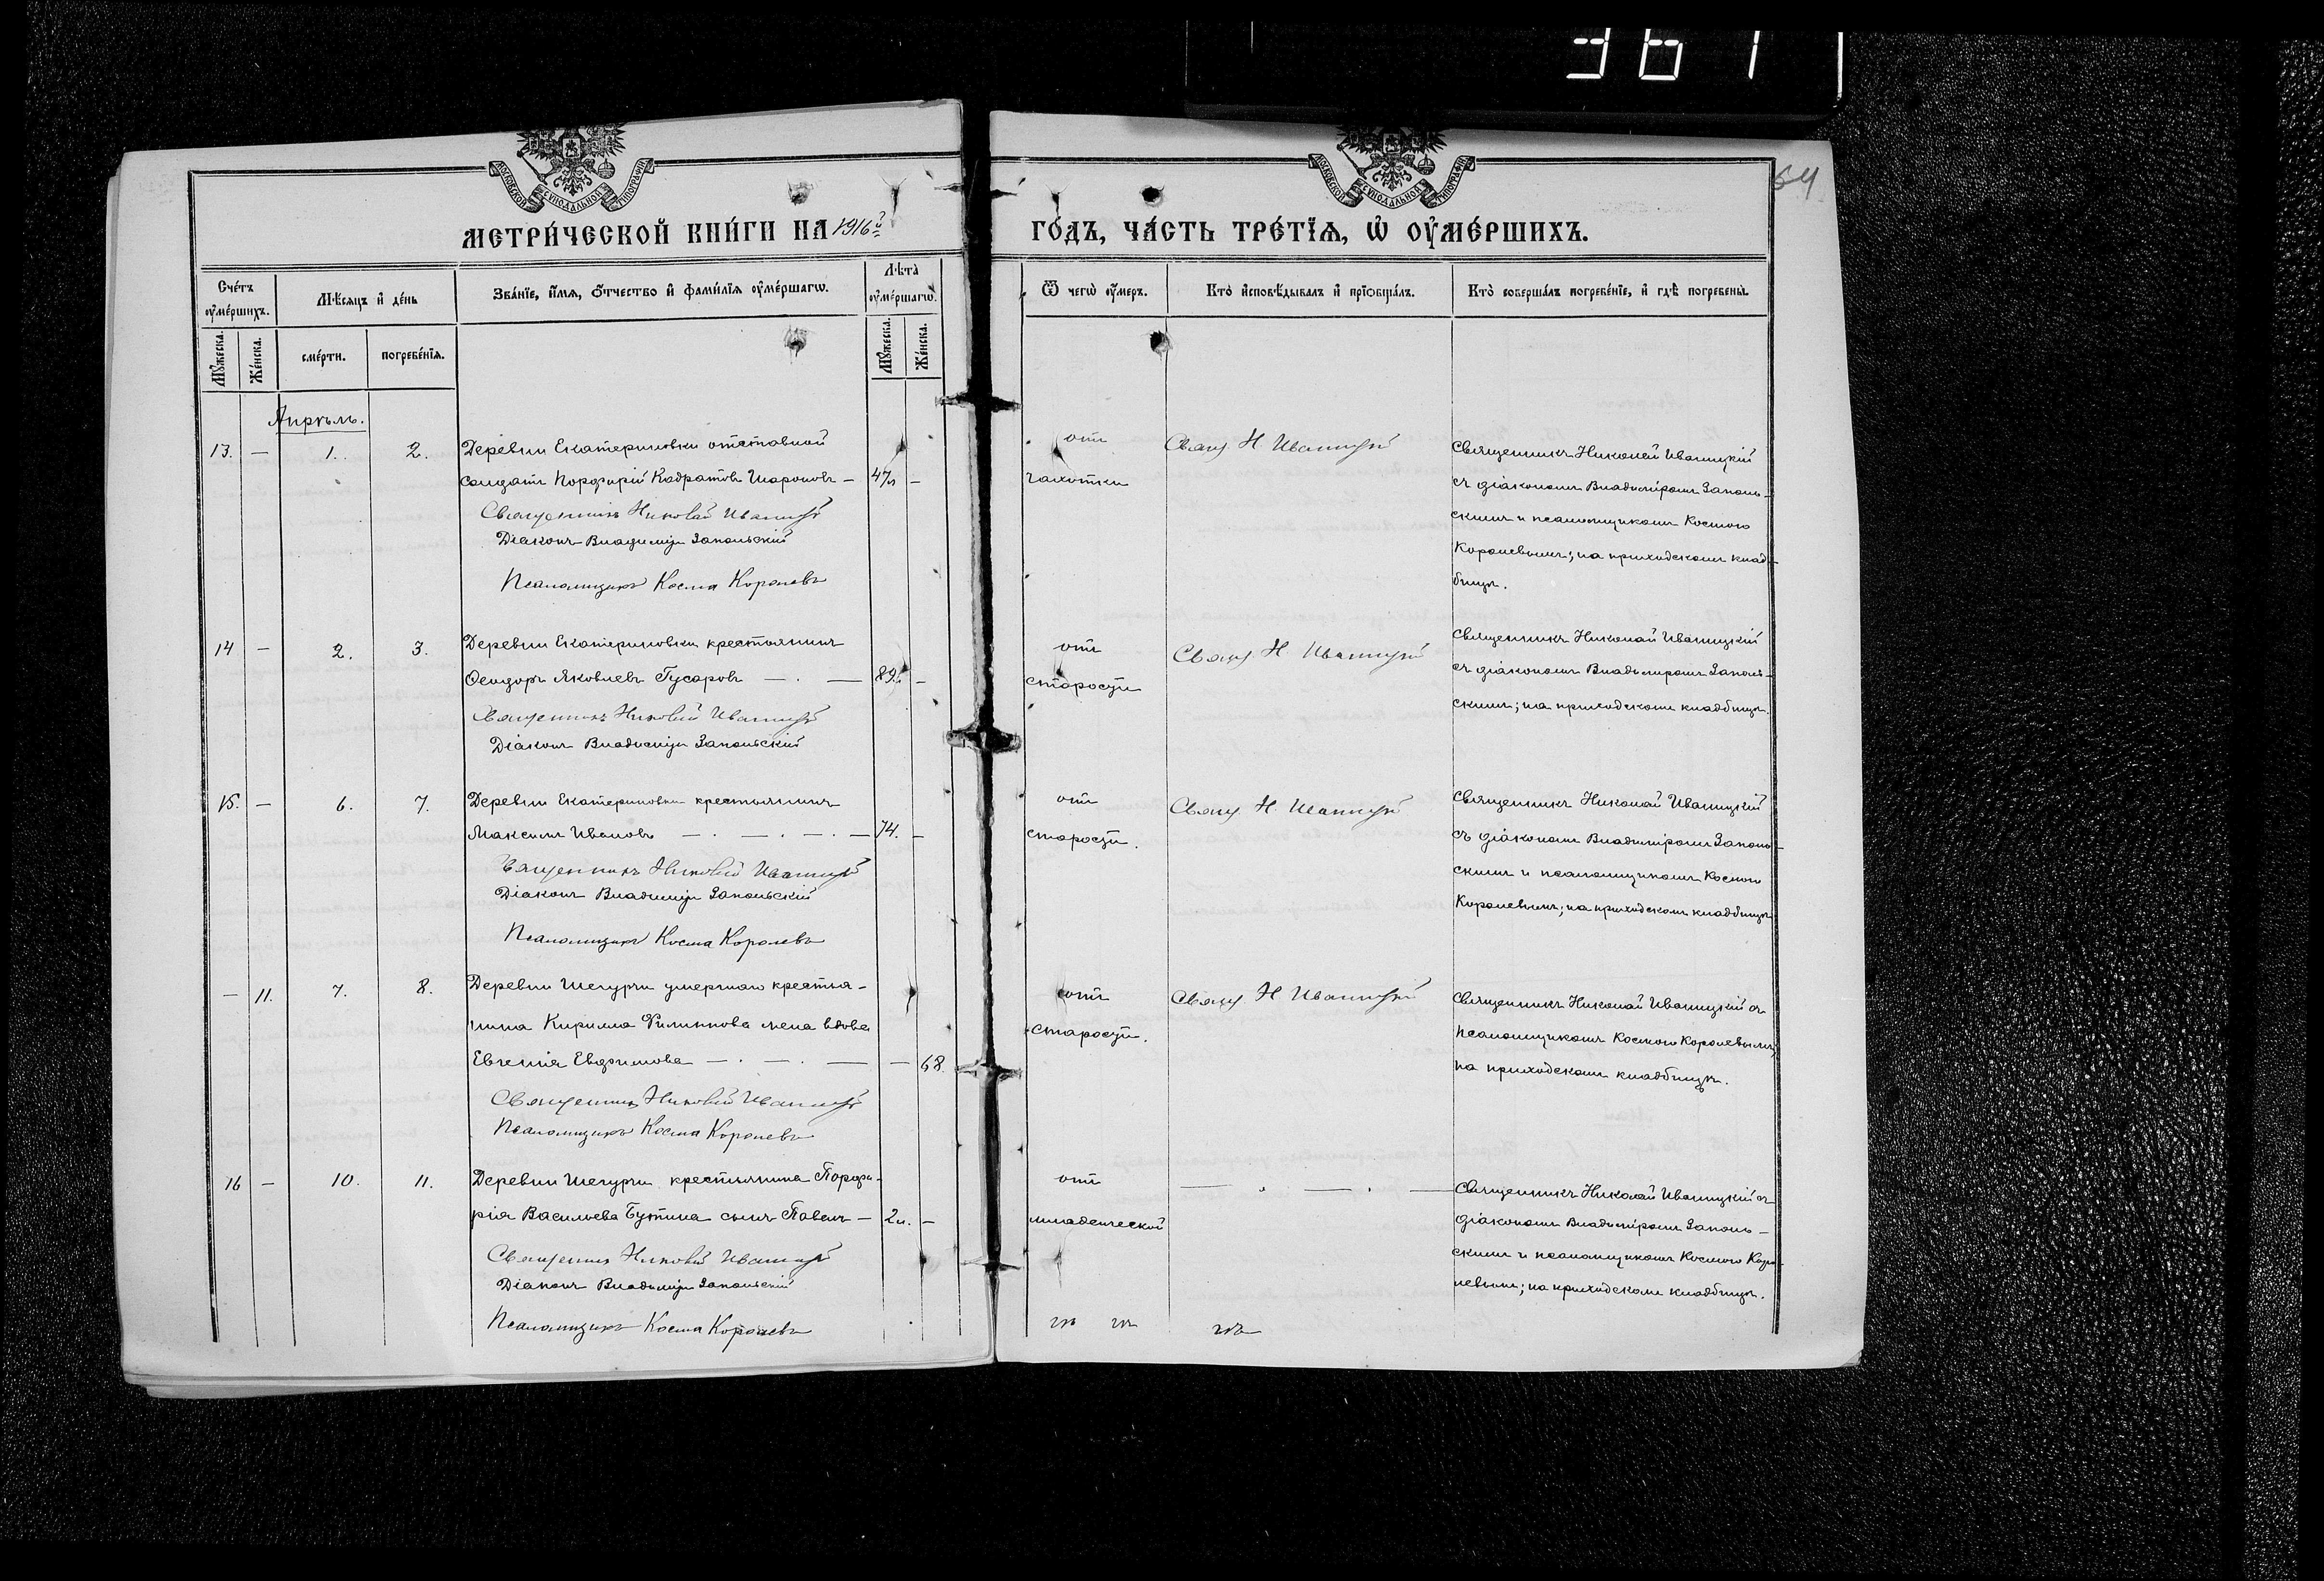 361
64
МОСКОВСКОЙ СѴНОДАЛЬНОЙ ТИПОГРАФІИ
МОСКОВСКОЙ СѴНОДАЛЬНОЙ ТИПОГРАФІИ
МЕТРИ́ЧЕСКОЙ КНИ́ГИ НА 1916й
ГО́ДЪ, ЧА́СТЬ ТРЕ́ТЇѦ, Ѡ҆ ОУ҆МЕ́РШИХЪ.
Сче́тъ оу҆ме́ршихъ.
Мѣ́сѧцъ и҆ де́нь
Зва́нїе, и҆́мѧ, ѻ҆́тчество и҆ фами́лїѧ оу҆ме́ршагѡ.
Лѣ̀та оу҆ме́ршагѡ.
Мꙋ́жеска.
Же́нска.
сме́рти.
погребе́нїѧ.
Мꙋ́жеска.
Же́нска.
Ѿ чегѡ̀ оу҆́меръ.
Кто̀ и҆сповѣ́дывалъ и҆ прїѡбща́лъ.
Кто̀ соверша́лъ погребе́нїе, и҆ гдѣ̀ погребены̀.
Апрѣль.
13. — 1. 2. Деревни Екатериновки отставной
солдатъ Порфирій Кодратовъ Шароновъ — 47л —
Священникъ Николай Иваницкій
Діаконъ Владиміръ Запольскій
Псаломщикъ Косма Королевъ
отъ
чахотки
Свящ. Н. Иваницкій
Священникъ Николай Иваницкій
съ діакономъ Владиміромъ Заполь-
скимъ и псаломщикомъ Космою
Королевымъ; на приходскомъ клад-
бищѣ.
14 — 2. 3. Деревни Екатериновки крестьянинъ
Ѳеодоръ Яковлевъ Гусаровъ — . — 89л. —
Священникъ Николай Иваницкій
Діаконъ Владиміръ Запольскій
отъ
старости
Свящ. Н. Иваницкій
Священникъ Николай Иваницкій
съ діакономъ Владиміромъ Заполь-
скимъ; на приходскомъ кладбищѣ.
15. — 6. 7. Деревни Екатериновки крестьянинъ
Максимъ Ивановъ — . — . — . — 74. —
Священникъ Николай Иваницкій
Діаконъ Владиміръ Запольскій
Псаломщикъ Косма Королевъ
отъ
старости.
Свящ. Н. Иваницкій
Священникъ Николай Иваницкій
съ діакономъ Владиміромъ Заполь-
скимъ и псаломщикомъ Космою
Королевымъ; на приходскомъ кладбищѣ
— 11. 7. 8. Деревни Шегурчи умершаго крестья-
нина Кирилла Филиппова жена вдова
Евгенія Евфимова — . — . — — 68.
Священникъ Николай Иваницкій
Псаломщикъ Косма Королевъ
отъ
старости.
Свящ. Н. Иваницкій
Священникъ Николай Иваницкій съ
псаломщикомъ Космою Королевымъ;
на приходскомъ кладбищѣ.
16 — 10. 11. Деревни Шегурчи крестьянина Порфи-
рія Васильева Бутина сынъ Павелъ — 2л. —
Священникъ Николай Иваницкій
Діаконъ Владиміръ Запольскій
Псаломщикъ Косма Королевъ
отъ
младенческой
— . — . —
Священникъ Николай Иваницкій съ
діакономъ Владиміромъ Заполь-
скимъ и псаломщикомъ Космою Коро-
левымъ; на приходскомъ кладбищѣ.